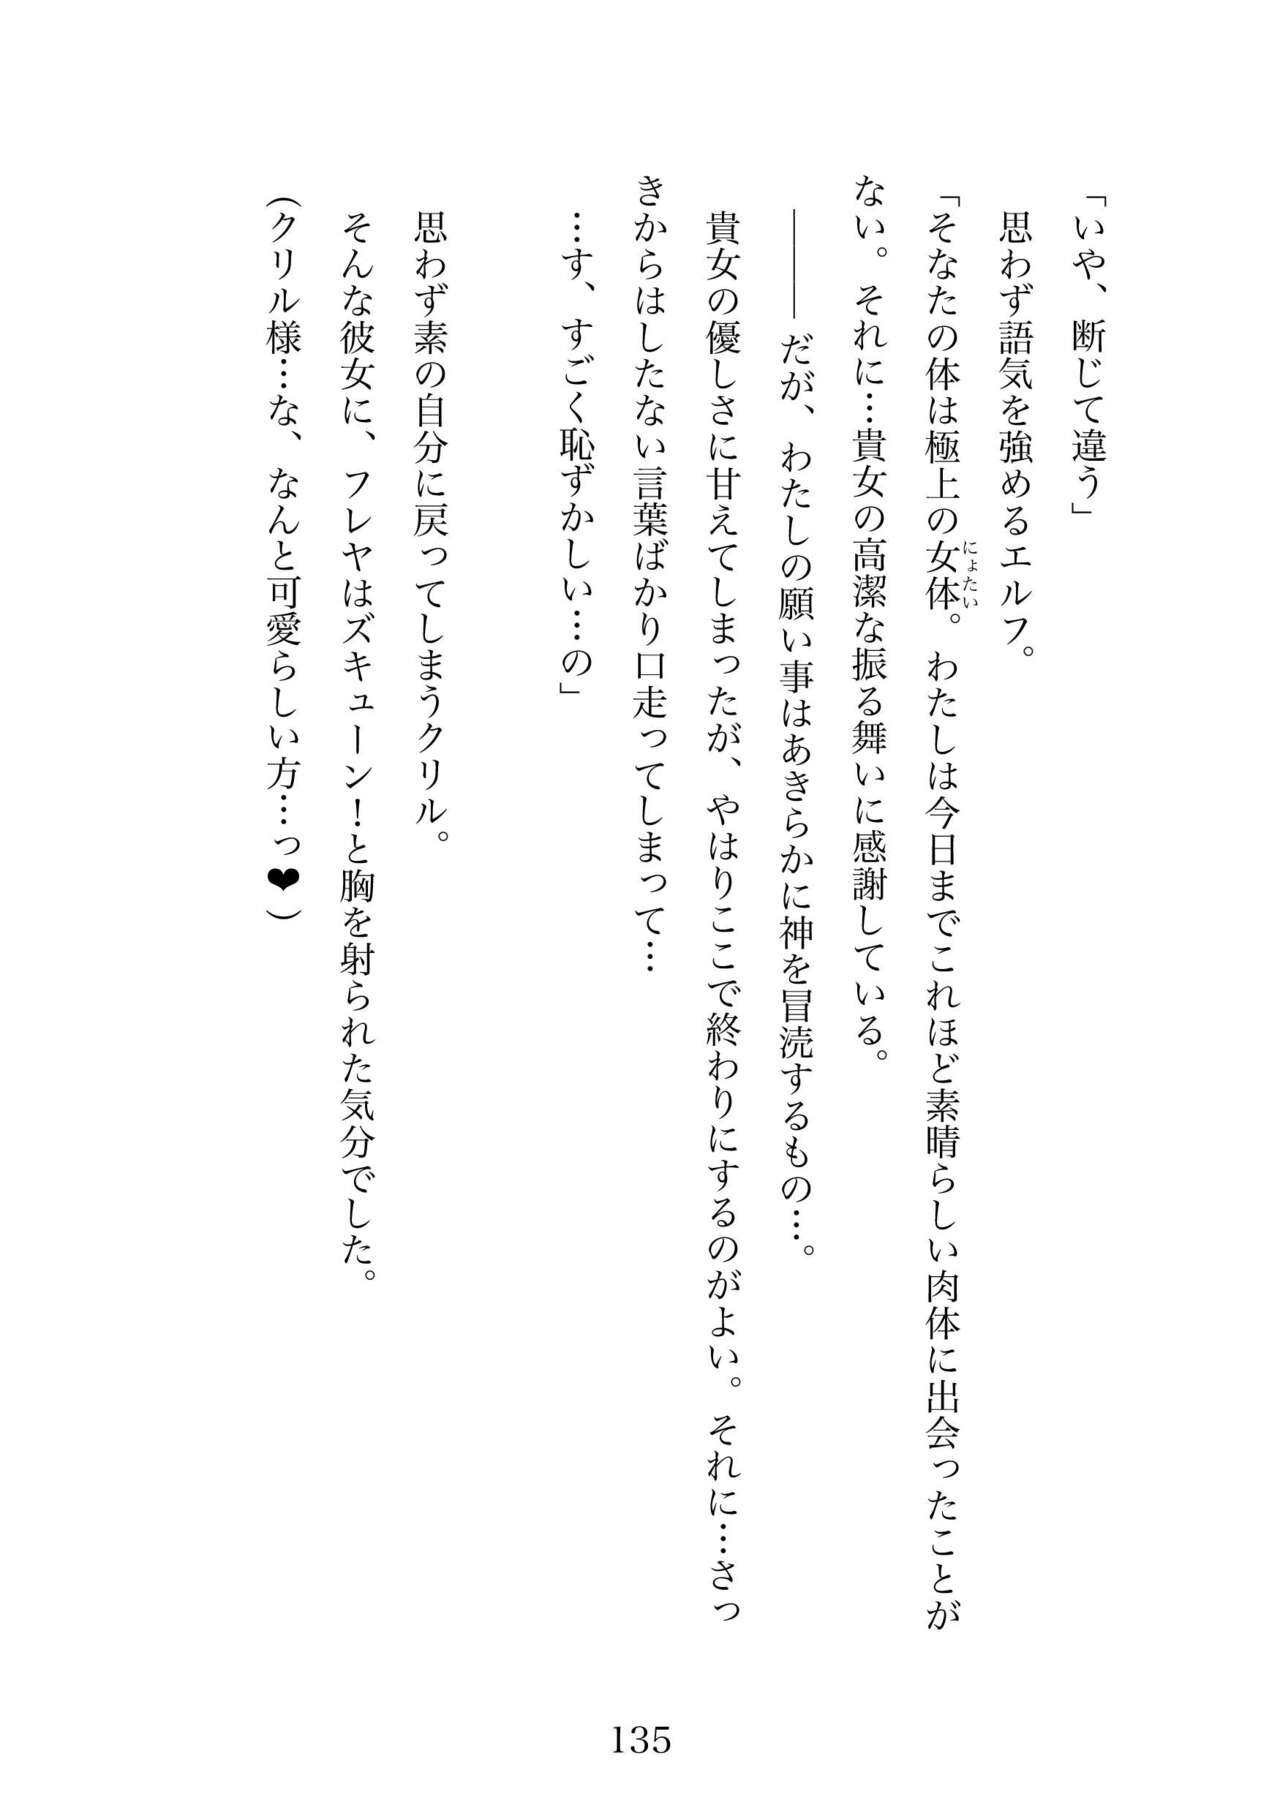 「いや、断じて違う」
思わず語気を強めるエルフ。
「そなたの体は極上の女体。わたしは今日までこれほど素晴らしい肉体に出会ったことが
にょたい
ない。それに…貴女の高潔な振る舞いに感謝している。
―――だが、わたしの願い事はあきらかに神を冒涜するもの…。
貴女の優しさに甘えてしまったが、やはりここで終わりにするのがよい。それに…さっ
きからはしたない言葉ばかり口走ってしまって…
…す、すごく恥ずかしい…の」
思わず素の自分に戻ってしまうクリル。
そんな彼女に、フレヤはズキューン！と胸を射られた気分でした。
(クリル様…な、なんと可愛らしい方…っ❤)
135